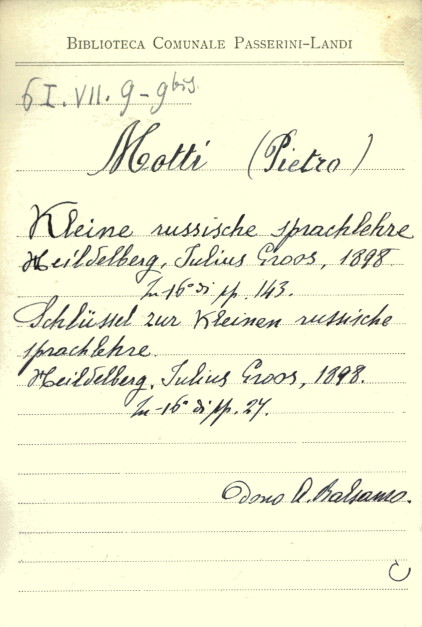 BIBLIOTECA COMUNALE PASSERINI-LANDI
6 I. VII. 9-9bis
Motti (Pietro)
Kleine russische sprachlehre
Heildelberg, Julius Groos, 1898
In-16° di pp. 143.
Schlüssel zur Kleinen russische
sprachlehre.
Heildelberg, Julius Groos, 1898.
In-16° di pp. 27.
Dono A. Balsamo.
C